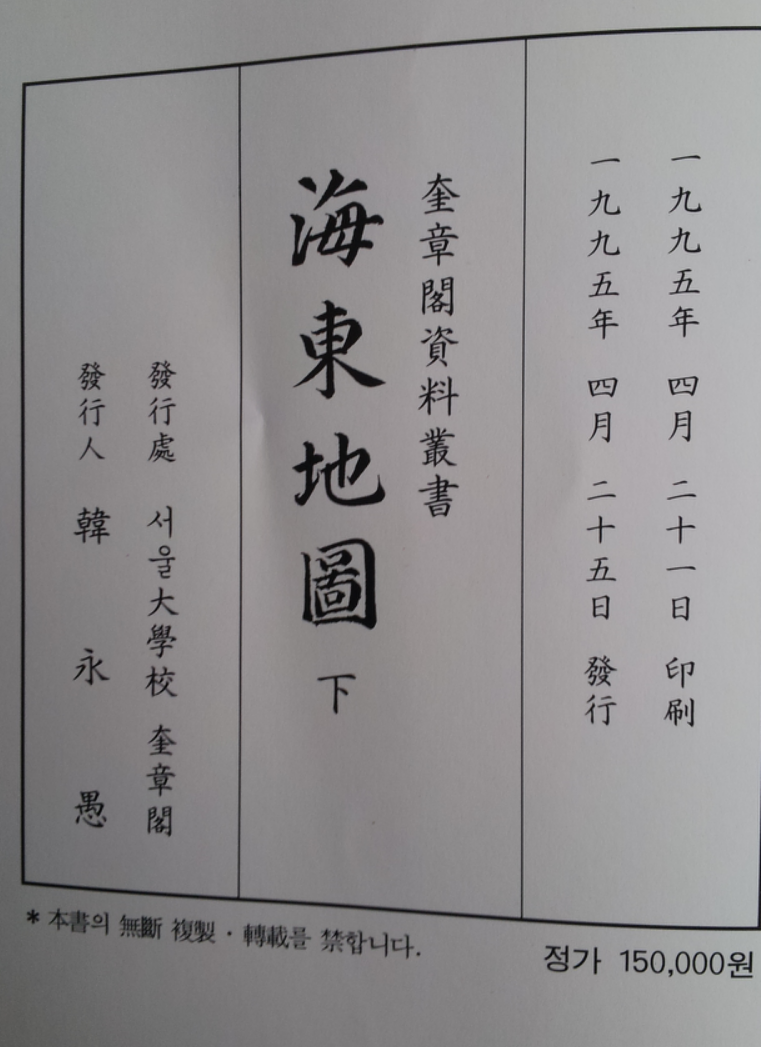 一九九五年 四月 二十一日 印刷
一九九五年 四月 二十五日 發行
奎章閣資料叢書
海東地圖 下
發行處 서울大學校 奎章閣
發行人 韓永愚
* 本書의 無斷 複製・轉載를 禁합니다.
정가 150,000원